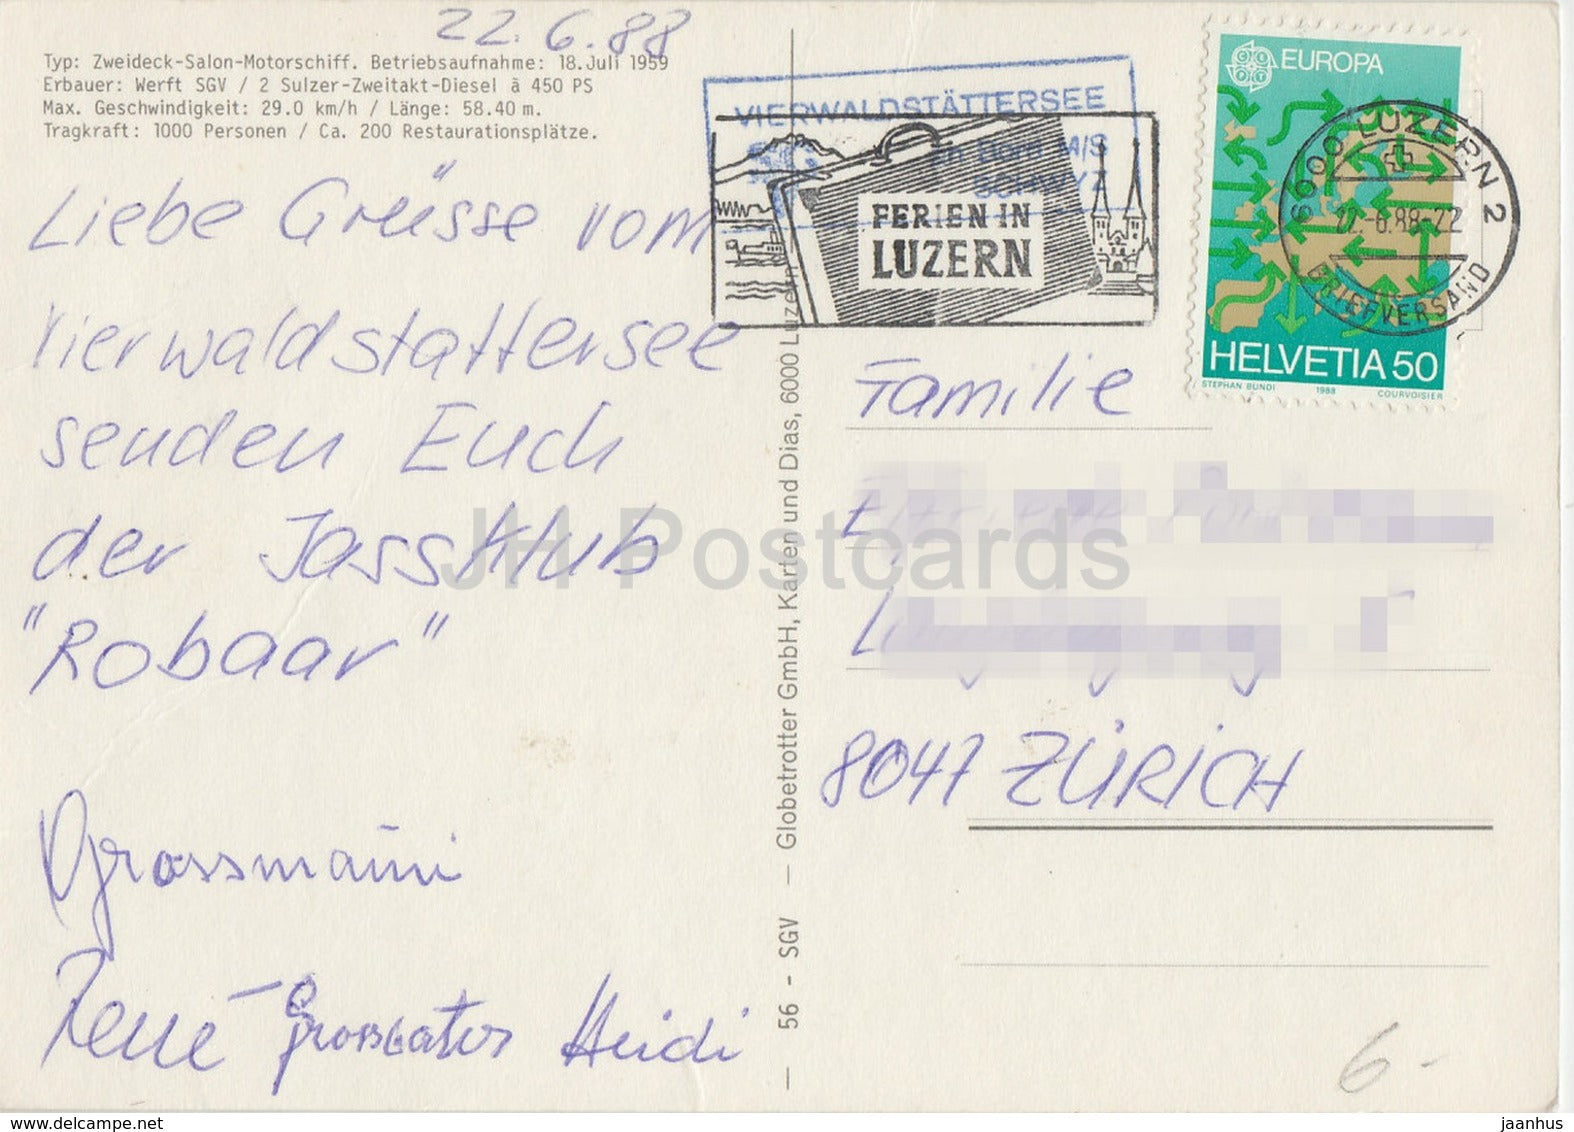 22.6.88
Typ: Zweideck-Salon-Motorschiff. Betriebsaufnahme: 18.Juli 1959
Erbauer: Werft SGV / 2 Sulzer-Zweitakt-Diesel à 450 PS
Max. Geschwindigkeit: 29.0 km/h / Länge: 58.40 m.
Tragkraft: 1000 Personen / Ca. 200 Restaurationsplätze.
Liebe Grüsse vom
Vierwaldstattersee
senden Euch
der Jassklub
"Robaar"
Grossmami
René Grossvater Heidi
56 - SGV — Globetrotter GmbH, Karten und Dias, 6000 Luzern
VIERWALDSTÄTTERSEE
an Bord M/S
SCHWYZ
FERIEN IN
LUZERN
EUROPA
CEPT
HELVETIA 50
STEPHAN BUNDI 1988 COURVOISIER
6000 LUZERN 2
22.-6.88-22
BRIEFVERSAND
Familie
8047 ZÜRICH
6.-
JH Postcards
jaanhus